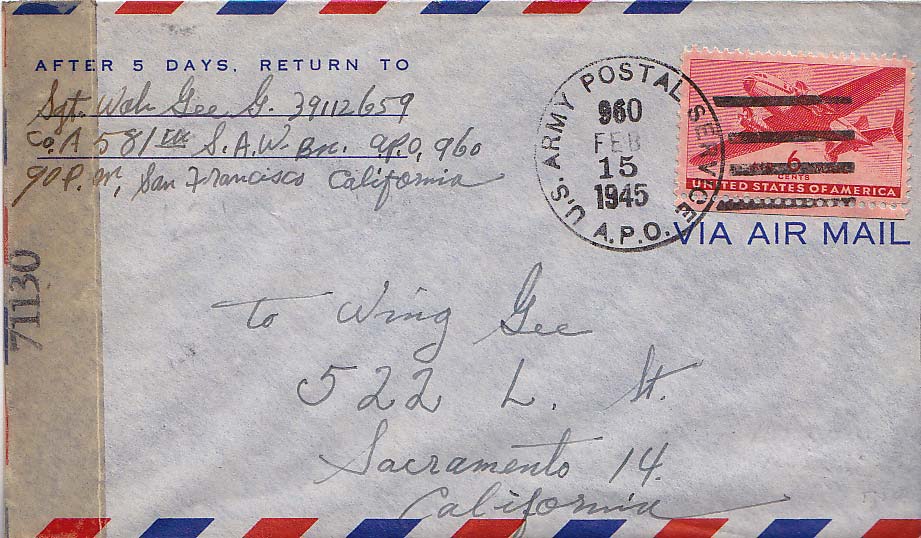 AFTER 5 DAYS, RETURN TO
Sgt. Wah Gee G. 39112659
Co. A 581 S.A.W. Bn. A.P.O. 960
% P. M, San Francisco California
U.S. ARMY POSTAL SERVICE
960
FEB
15
1945
A.P.O.
6
CENTS
UNITED STATES OF AMERICA
VIA AIR MAIL
71130
to Wing Gee
522 L. St.
Sacramento 14.
California